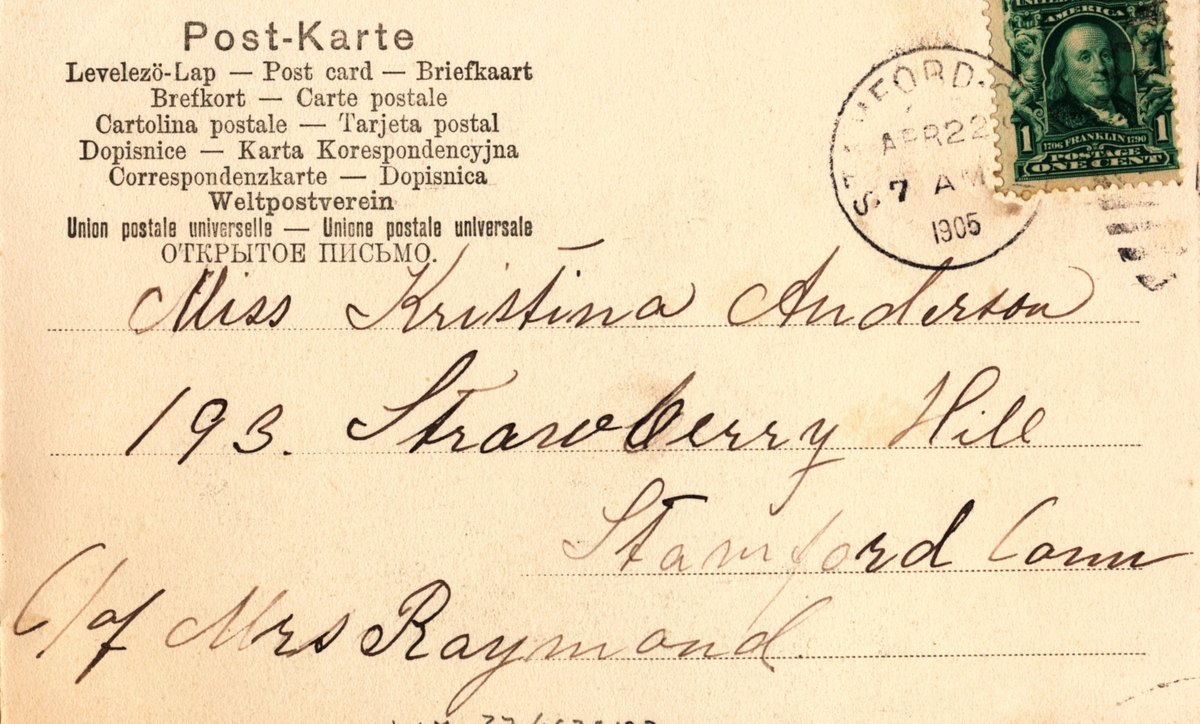 Post-Karte
Levelezö-Lap — Post card — Briefkaart
Brefkort — Carte postale
Cartolina postale — Tarjeta postal
Dopisnice — Karta Korespondencyjna
Correspondenzkarte — Dopisnica
Weltpostverein
Union postale universelle — Unione postale universale
ОТКРЫТОЕ ПИСЬМО.
STAMFORD
APR 22
7 AM
1905
AMERICA
1 1
1706 FRANKLIN 1790
POSTAGE
ONE CENT
Miss Kristina Anderson
193. Strawberry Hill
Stamford Conn
C/of Mrs Raymond.